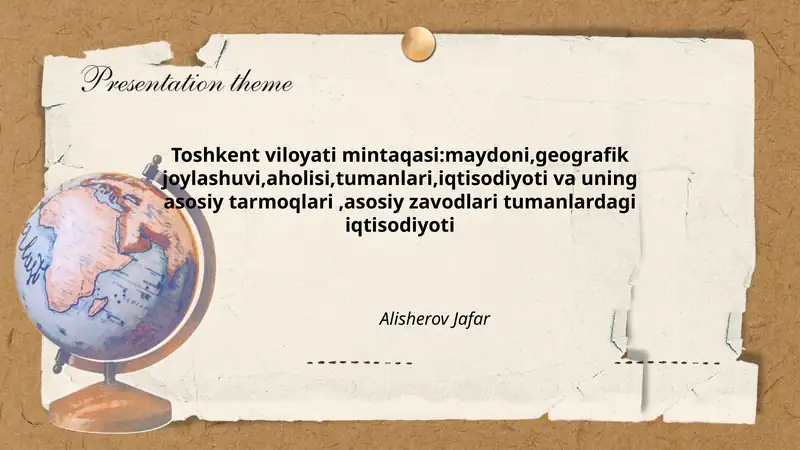 Presentation theme
Toshkent viloyati mintaqasi:maydoni,geografik
joylashuvi,aholisi,tumanlari,iqtisodiyoti va uning
asosiy tarmoqlari ,asosiy zavodlari tumanlardagi
iqtisodiyoti
Alisherov Jafar